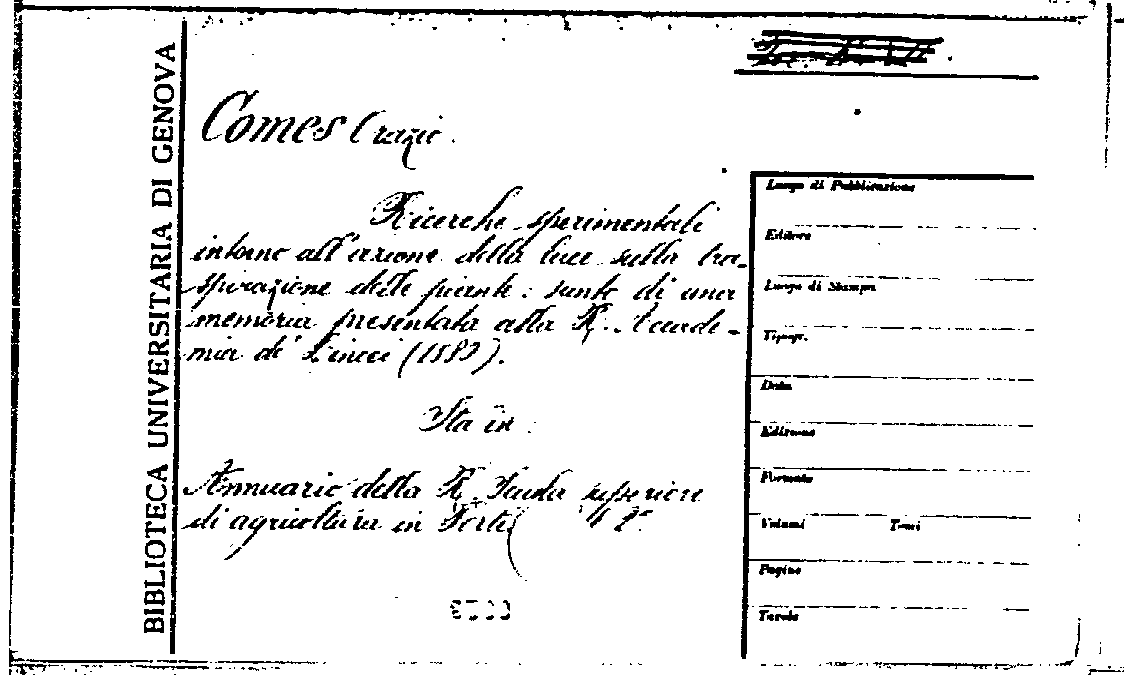 BIBLIOTECA UNIVERSITARIA DI GENOVA
Comes Orazio.
Ricerche sperimentali
intorno all'azione della luce sulla tra-
spirazione delle piante: sunto di una
memoria presentata alla R. Accade-
mia di Lincei (1880).
Sta in:
Annuario della R. Scuola superiore
di agricoltura in Portici
Luogo di Pubblicazione
Editore
Luogo di Stampa
Tipogr.
Data
Edizione
Formato
Volumi Tomi
Pagine
Tavole